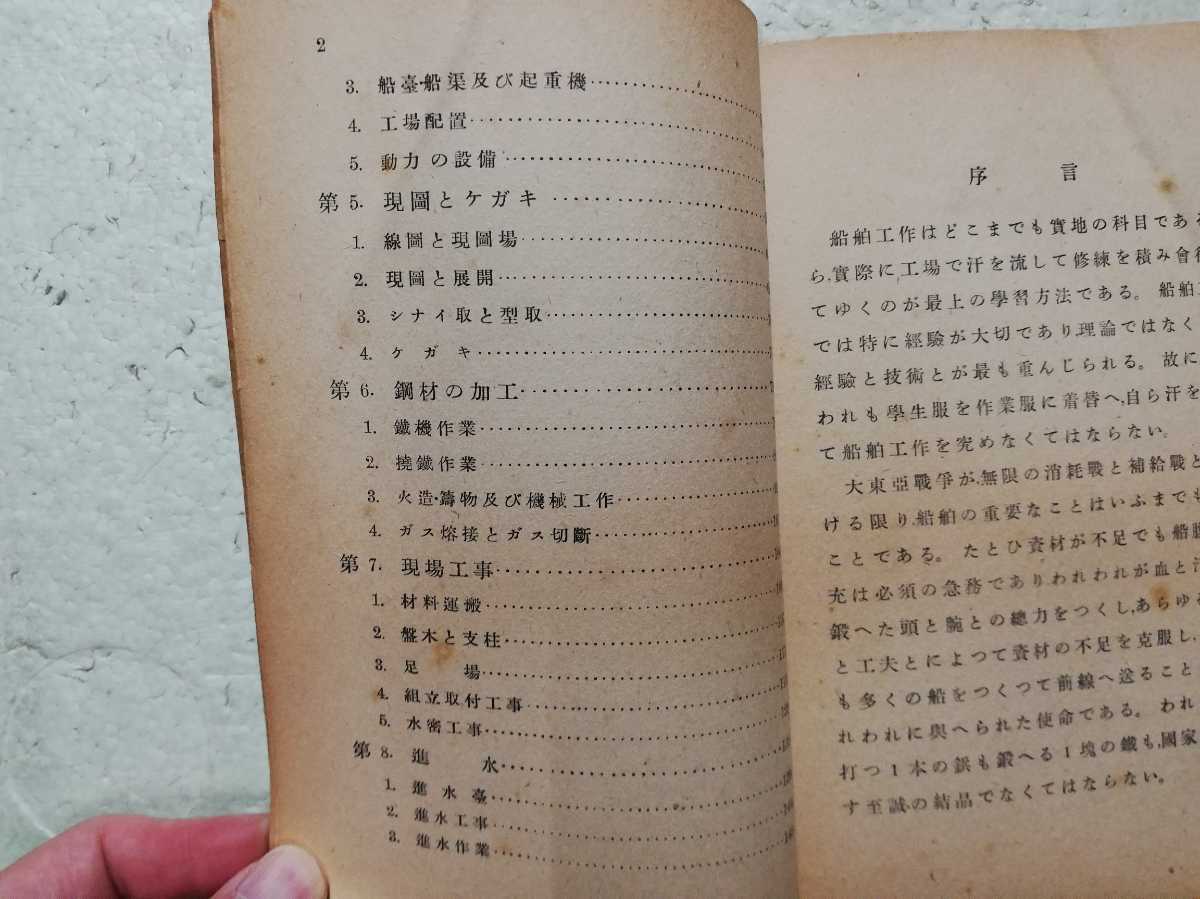 2
3. 船臺・船渠及び起重機
4. 工場配置
5. 動力の設備
第5. 現圖とケガキ
1. 線圖と現圖場
2. 現圖と展開
3. シナイ取と型取
4. ケガキ
第6. 鋼材の加工
1. 鐵機作業
2. 撓鐵作業
3. 火造・鑄物及び機械工作
4. ガス熔接とガス切斷
第7. 現場工事
1. 材料運搬
2. 盤木と支柱
3. 足場
4. 組立取付工事
5. 水密工事
第8. 進水
1. 進水臺
2. 進水工事
3. 進水作業
序言
船舶工作はどこまでも實地の科目である
ら,實際に工場で汗を流して修練を積み會得
てゆくのが最上の學習方法である。船舶工
では特に經驗が大切であり,理論ではなく
經驗と技術とが最も重んじられる。故に
われも學生服を作業服に着替へ,自ら汗を
て船舶工作を究めなくてはならない。
大東亞戰爭が,無限の消耗戰と補給戰と
ける限り,船舶の重要なことはいふまでも
ことである。たとひ資材が不足でも船腹
充は必須の急務でありわれわれが血と汗
鍛へた頭と腕との總力をつくし,あらゆる
と工夫とによつて資材の不足を克服し,
も多くの船をつくつて前線へ送ること
れわれに與へられた使命である。われ
打つ1本の鋲も鍛へる1塊の鐵も,國家
す至誠の結晶でなくてはならない。